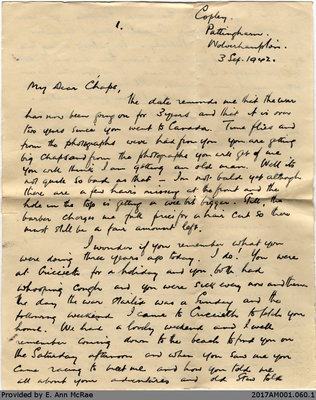 1.
Copley.
Pattingham.
Wolverhampton.
3 Sep. 1942.
My Dear Chaps,
The date reminds me that the war
has now been going on for 3 years and that it is over
two years since you went to Canada. Time flies and
from the photographs we've had from you you are getting
big chaps and from the photographs you will get of me
you will think I am getting an old man. Well its
not quite so bad as that – I'm not bald yet although
there are a few hairs missing at the front and the
hole in the top is getting a wee bit bigger. Still, the
barber charges me full price for a hair cut so there
must still be a fair amount left.
I wonder if you remember what you
were doing three years ago today. I do! You were
at Criccieth for a holiday and you both had
whooping cough and you were sick every now and then
the day the war started was a Sunday and the
following weekend I came to Criccieth to fetch you
home. We had a lovely weekend and I well
remember coming down to the beach to find you on
the Saturday afternoon and when you saw me you
came racing to meet me and how you told me
all about your adventures and did Stew told
Provided by E. Ann McRae
2017AM001.060.1